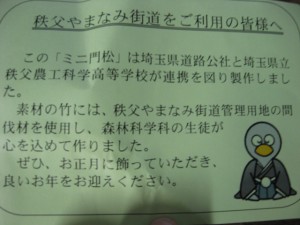 秩父やまなみ街道をご利用の皆様へ
この「ミニ門松」は埼玉県道路公社と埼玉県立
秩父農工科学高等学校が連携を図り製作しまし
た。
素材の竹には、秩父やまなみ街道管理用地の間
伐材を使用し、森林科学科の生徒が
心を込めて作りました。
ぜひ、お正月に飾っていただき、
良いお年をお迎えください。